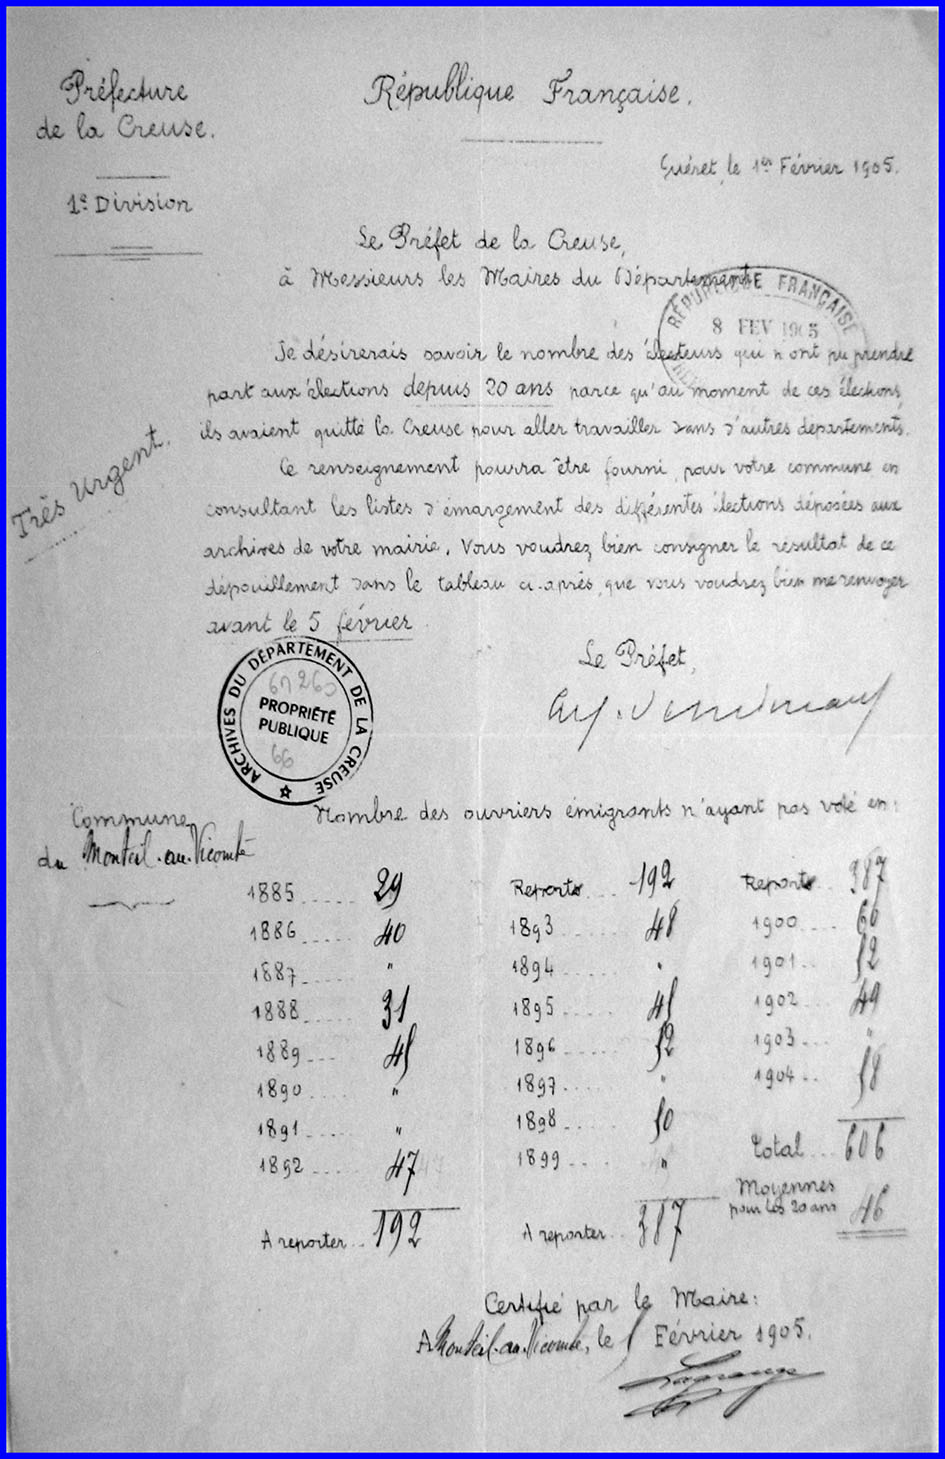 Préfecture
de la Creuse.
1e Division
République Française.
Guéret, le 1er Février 1905.
Le Préfet de la Creuse,
à Messieurs les Maires du Département
RÉPUBLIQUE FRANÇAISE
8 FEV 1905
Je désirerais savoir le nombre des électeurs qui n'ont pu prendre
part aux élections depuis 20 ans parce qu'au moment de ces élections,
ils avaient quitté la Creuse pour aller travailler dans d'autres départements.
Très Urgent.
Ce renseignement pourra être fourni, pour votre commune en
consultant les listes d'émargement des différentes élections déposées aux
archives de votre mairie. Vous voudrez bien consigner le résultat de ce
dépouillement dans le tableau ci-après, que vous voudrez bien me renvoyer
avant le 5 février.
Le Préfet,
ARCHIVES DU DÉPARTEMENT DE LA CREUSE
PROPRIÉTÉ
PUBLIQUE
66
Commune
du Monteil-au-Vicomte
Nombre des ouvriers émigrants n'ayant pas voté en:
1885 ..... 29
1886 ..... 40
1887 ..... "
1888 ..... 31
1889 .... 45
1890 ..... "
1891 ..... "
1892 ..... 47
A reporter .. 192
Reports ... 192
1893 ..... 48
1894 ..... "
1895 ..... 45
1896 ..... 52
1897 .... "
1898 ..... 50
1899 ... "
A reporter .. 387
Reports .. 387
1900 .... 60
1901 ... 52
1902 ... 49
1903 ... "
1904 .. 58
Total ... 606
Moyennes
pour les 20 ans 46
Certifié par le Maire:
A Monteil-au-Vicomte, le 5 Février 1905.